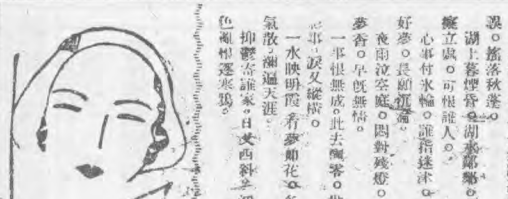 誤。搖落秋蓬。
湖上暮煙昏。湖水粼粼。
癡立處。可恨誰人。
心事付冰輪。誰指迷津。
好夢。長願沉淪。
夜雨泣空庭。悶對殘燈。
夢香。早旣無情。
一事恨無成。此去飄零。
事。淚又縱橫。
一水映明霞。看夢如花。
氣散。瀰遍天涯
抑鬱寄誰家。日又西斜。
色逐寒鴉。